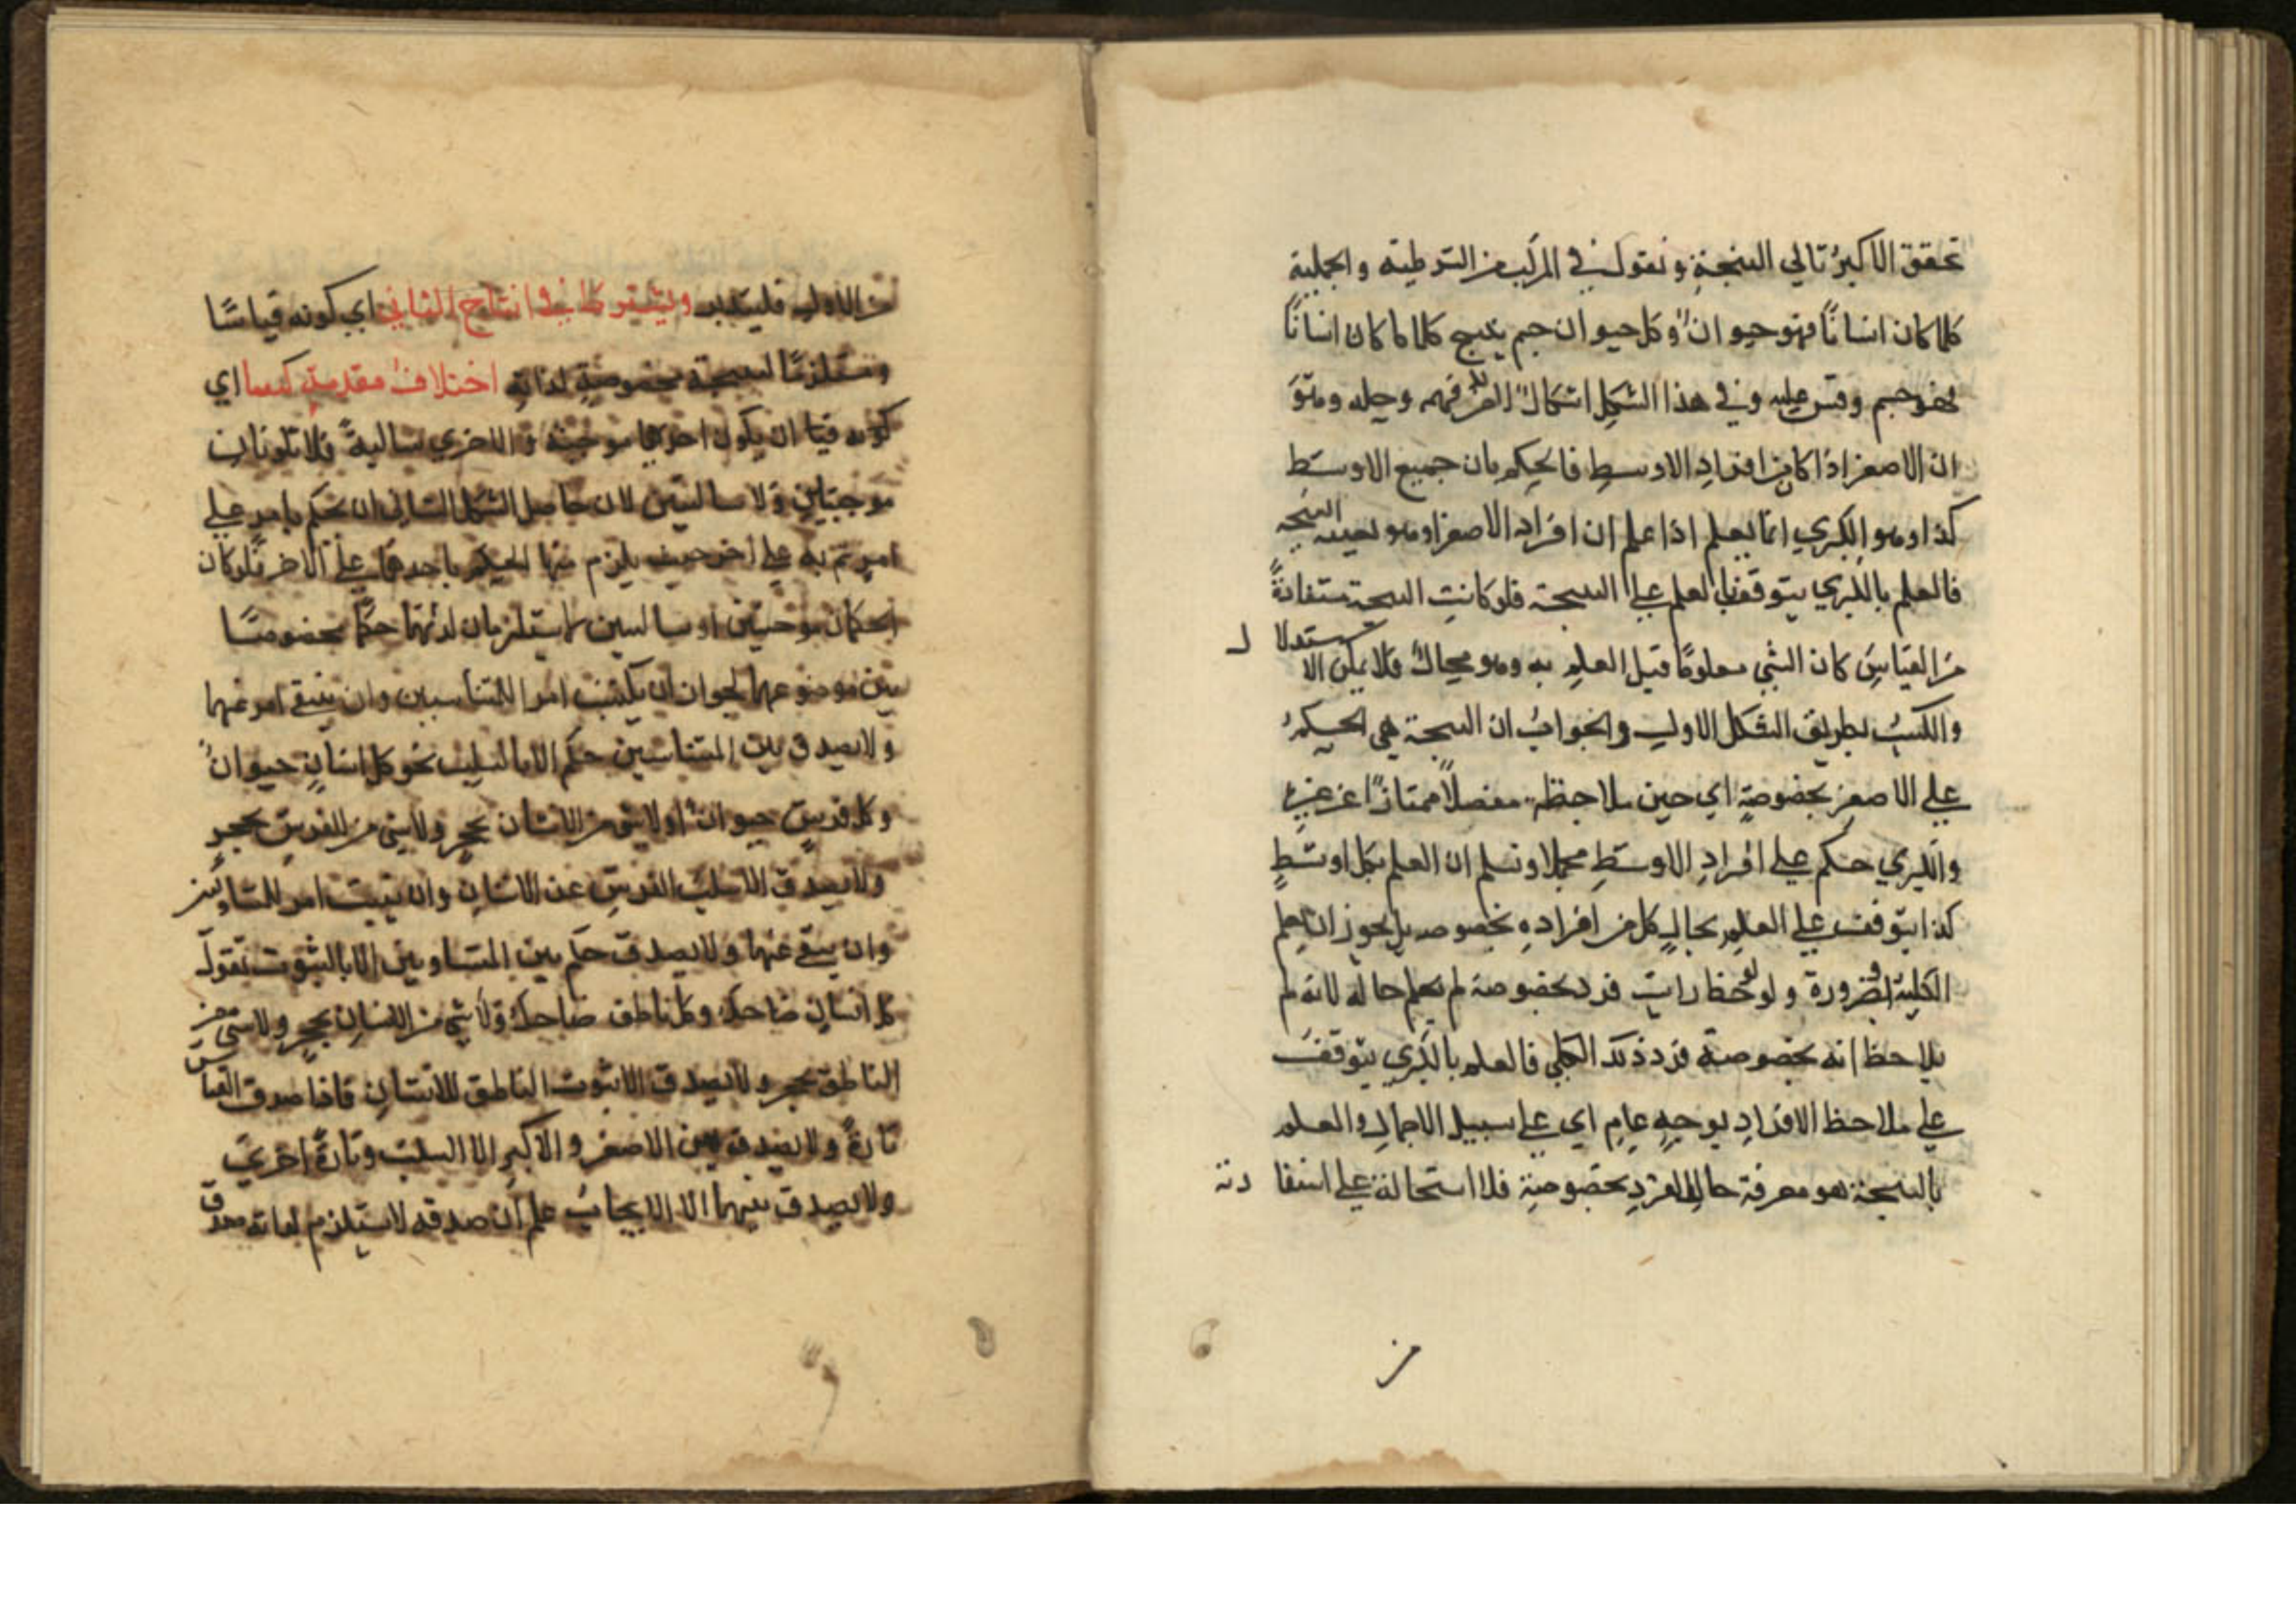 تحقق الاكبر تالي النتيجة ونقول في المركب من الشرطية والحملية
كلما كان انسانًا فهو حيوانٌ وكل حيوان جسم ينتج كلما كان انسانًا
فهو جسم وقس عليه وفي هذا الشكل اشكالٌ فهمه وحله وهو
ان الاصغر اذا كان من افراد الاوسط فالحكم بان جميع الاوسط
كذا وهو الكبري انما يعلم اذا علم ان افراد الاصغر وهو بعينه النتيجة
فالعلم بالكبري يتوقف العلم علي النتيجة فلو كانت النتيجة مستفادةً
من القياس كان الشي معلومًا قبل العلم به وهو محالٌ فلا يمكن الاستدلال
والكسبُ بطريق الشكل الاول والجوابُ ان النتيجة هي الحكمُ
علي الاصغر بخصوصةٍ اي حين ملاحظة مفصلًا ممتازًا عن غيره
والكبري حكم علي افراد الاوسط مجملا ونسلم ان العلم بكل اوسط
كذا يتوقف علي العلم بحال كل من افراده بخصوصه بل يجوز ان يعلم
الكلية ضرورة ولو لاحظ رايت فرد بخصوصة لم يعلم حاله لانه لم
يلاحظ انه بخصوصة فرد ذلك الكلي فالعلم بالكبري يتوقف
علي ملاحظ الافراد بوجهٍ عامٍ اي علي سبيل الاجمال والعلم
بالنتيجة هو معرفة حال الفرد بخصوصةٍ فلا استحالة علي استفادته
من
من الاول فليتدبر ويشترط في انتاج الثاني اي كونه قياسًا
ومستلزمًا لنتيجة بخصوصةٍ لذاته اختلافُ مقدمتي كيفا اي
كونه قياسا ان يكون احدهما موجبة والاخري سالبةً فلا تكونان
موجبتين ولا سالبتين لان حاصل الشكل الثاني ان نحكم بامر علي
امر ثم به علي اخر حيث يلزم منها الحكم باحدهما علي الاخر فلو كان
الحكمان موجبتين او سالبتين لا يستلزمان لذتهما حكمًا مخصوصًا
بين موضوعهما لجوان ان يكتب امر المتناسبين وان ينتفي امر عنهما
ولا يصدق بين المتناسبين حكم الا بالسلب نحو كل انسانٍ حيوانٌ
وكل فرسٍ حيوانٌ او لا شي من الانسان بحجرٍ ولا شي من الفرس بحجرٍ
ولا يصدق الا سلب الفرس عن الانسان وان يثبت امر للمتساويين
وان ينتفي عنهما ولا يصدق حكم بين المتساويين الا بالثبوت تقول
كل انسان ضاحك وكل ناطق ضاحك ولا شي من الانسان بحجر ولا شي من
الناطق بحجر ولا يصدق الا ثبوت الناطق للانسان فاذا صدق القياس
تارةً ولا يصدق بين الاصغر والاكبر الا السلب وتارةً اخري
ولا يصدق بينهما الا الايجابُ علم ان صدقه لا يستلزم لذاته صدق